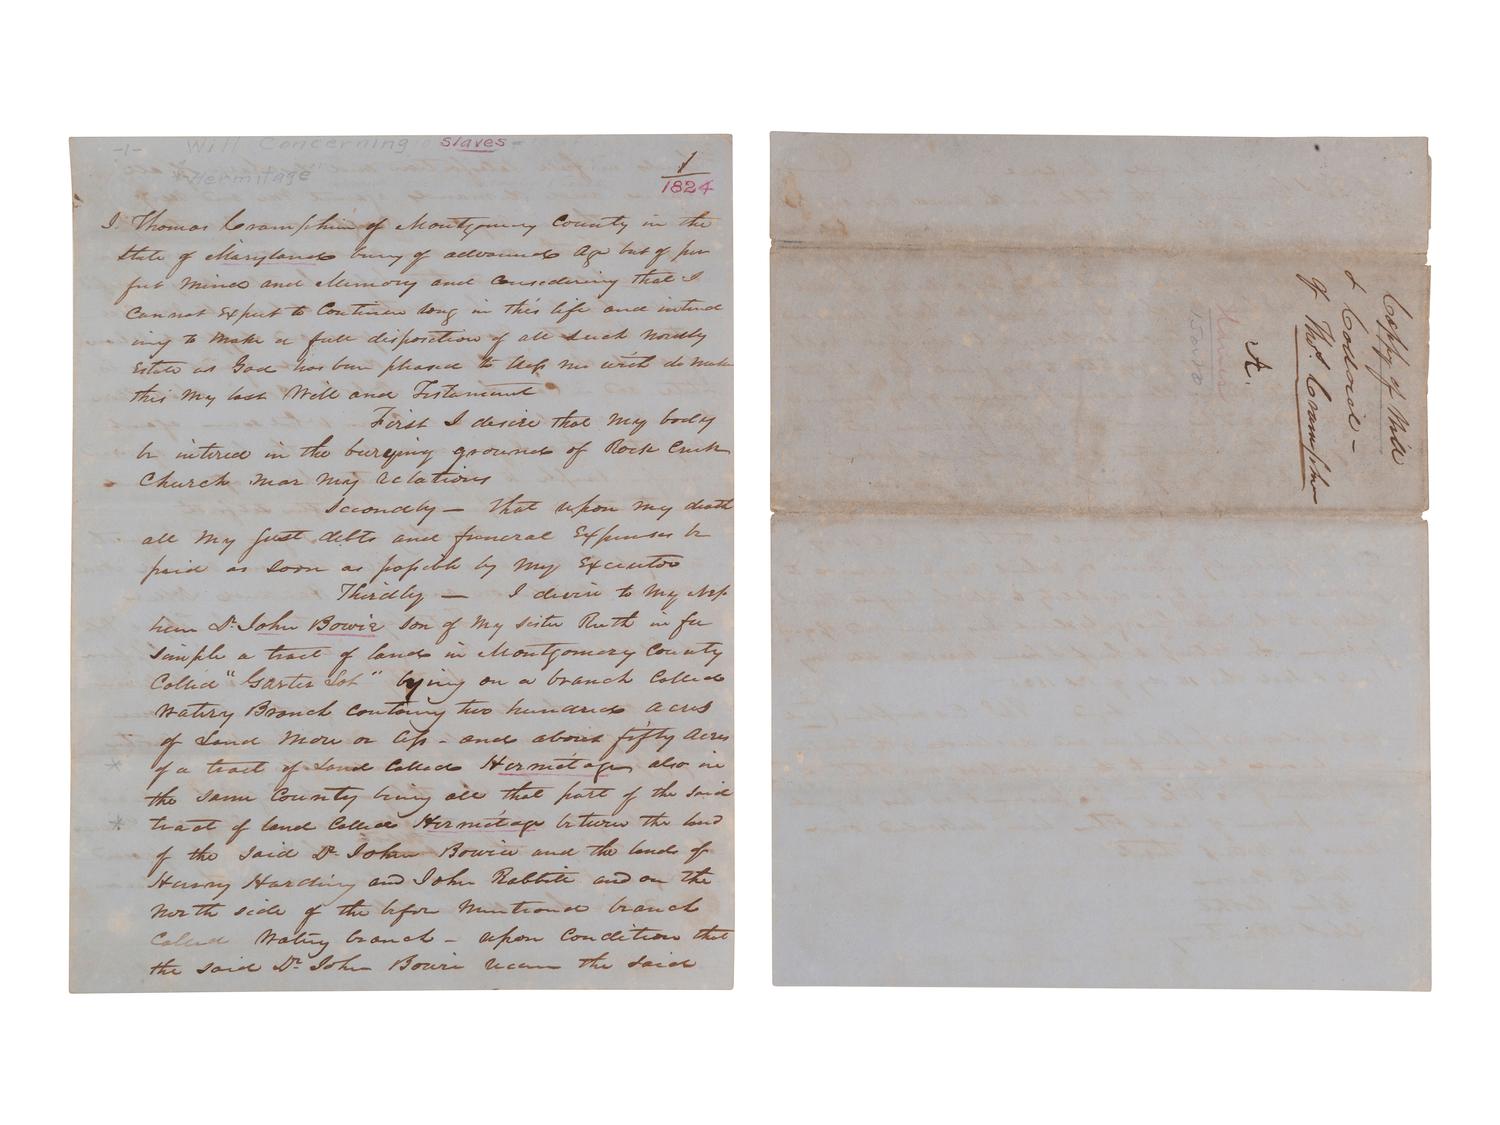 -1- Will Concerning slaves -
"Hermitage"
1
1824
I. Thomas Cramphin of Montgomery County in the
State of Maryland being of advanced Age but of per
fect Mind and Memory and Considering that I
Cannot Expect to Continue long in this life and intend
ing to Make a full disposition of all such Wordly
Estate as God has been pleased to bless me with do make
this My last Will and Testament
First I desire that My body
be intired in the buryying ground of Rock Creek
Church near my relations
Secondly — that upon my death
all My Just debts and funeral Expenses be
paid as soon as possible by My Executor
Thirdly — I devise to My Nep
hew Dr. John Bowie son of My sister Ruth in fee
simple a tract of land in Montgomery County
Called "Garter Lot" lying on a branch Called
Watery Branch containg two hundred acres
of Land More or less - and about fifty Acres
* of a tract of Land Called Hermitage also in
the same County being all that part of the said
* tract of land Called Hermitage between the land
of the said Dr. John Bowie and the land of
Henry Harding and John Rabbitt and on the
North side of the before Mentioned branch
Called Watery branch — upon Condition that
the said Dr. John Bowie the said
Coppy of Will
& Codocil -
of Thos. Cramphin
A.